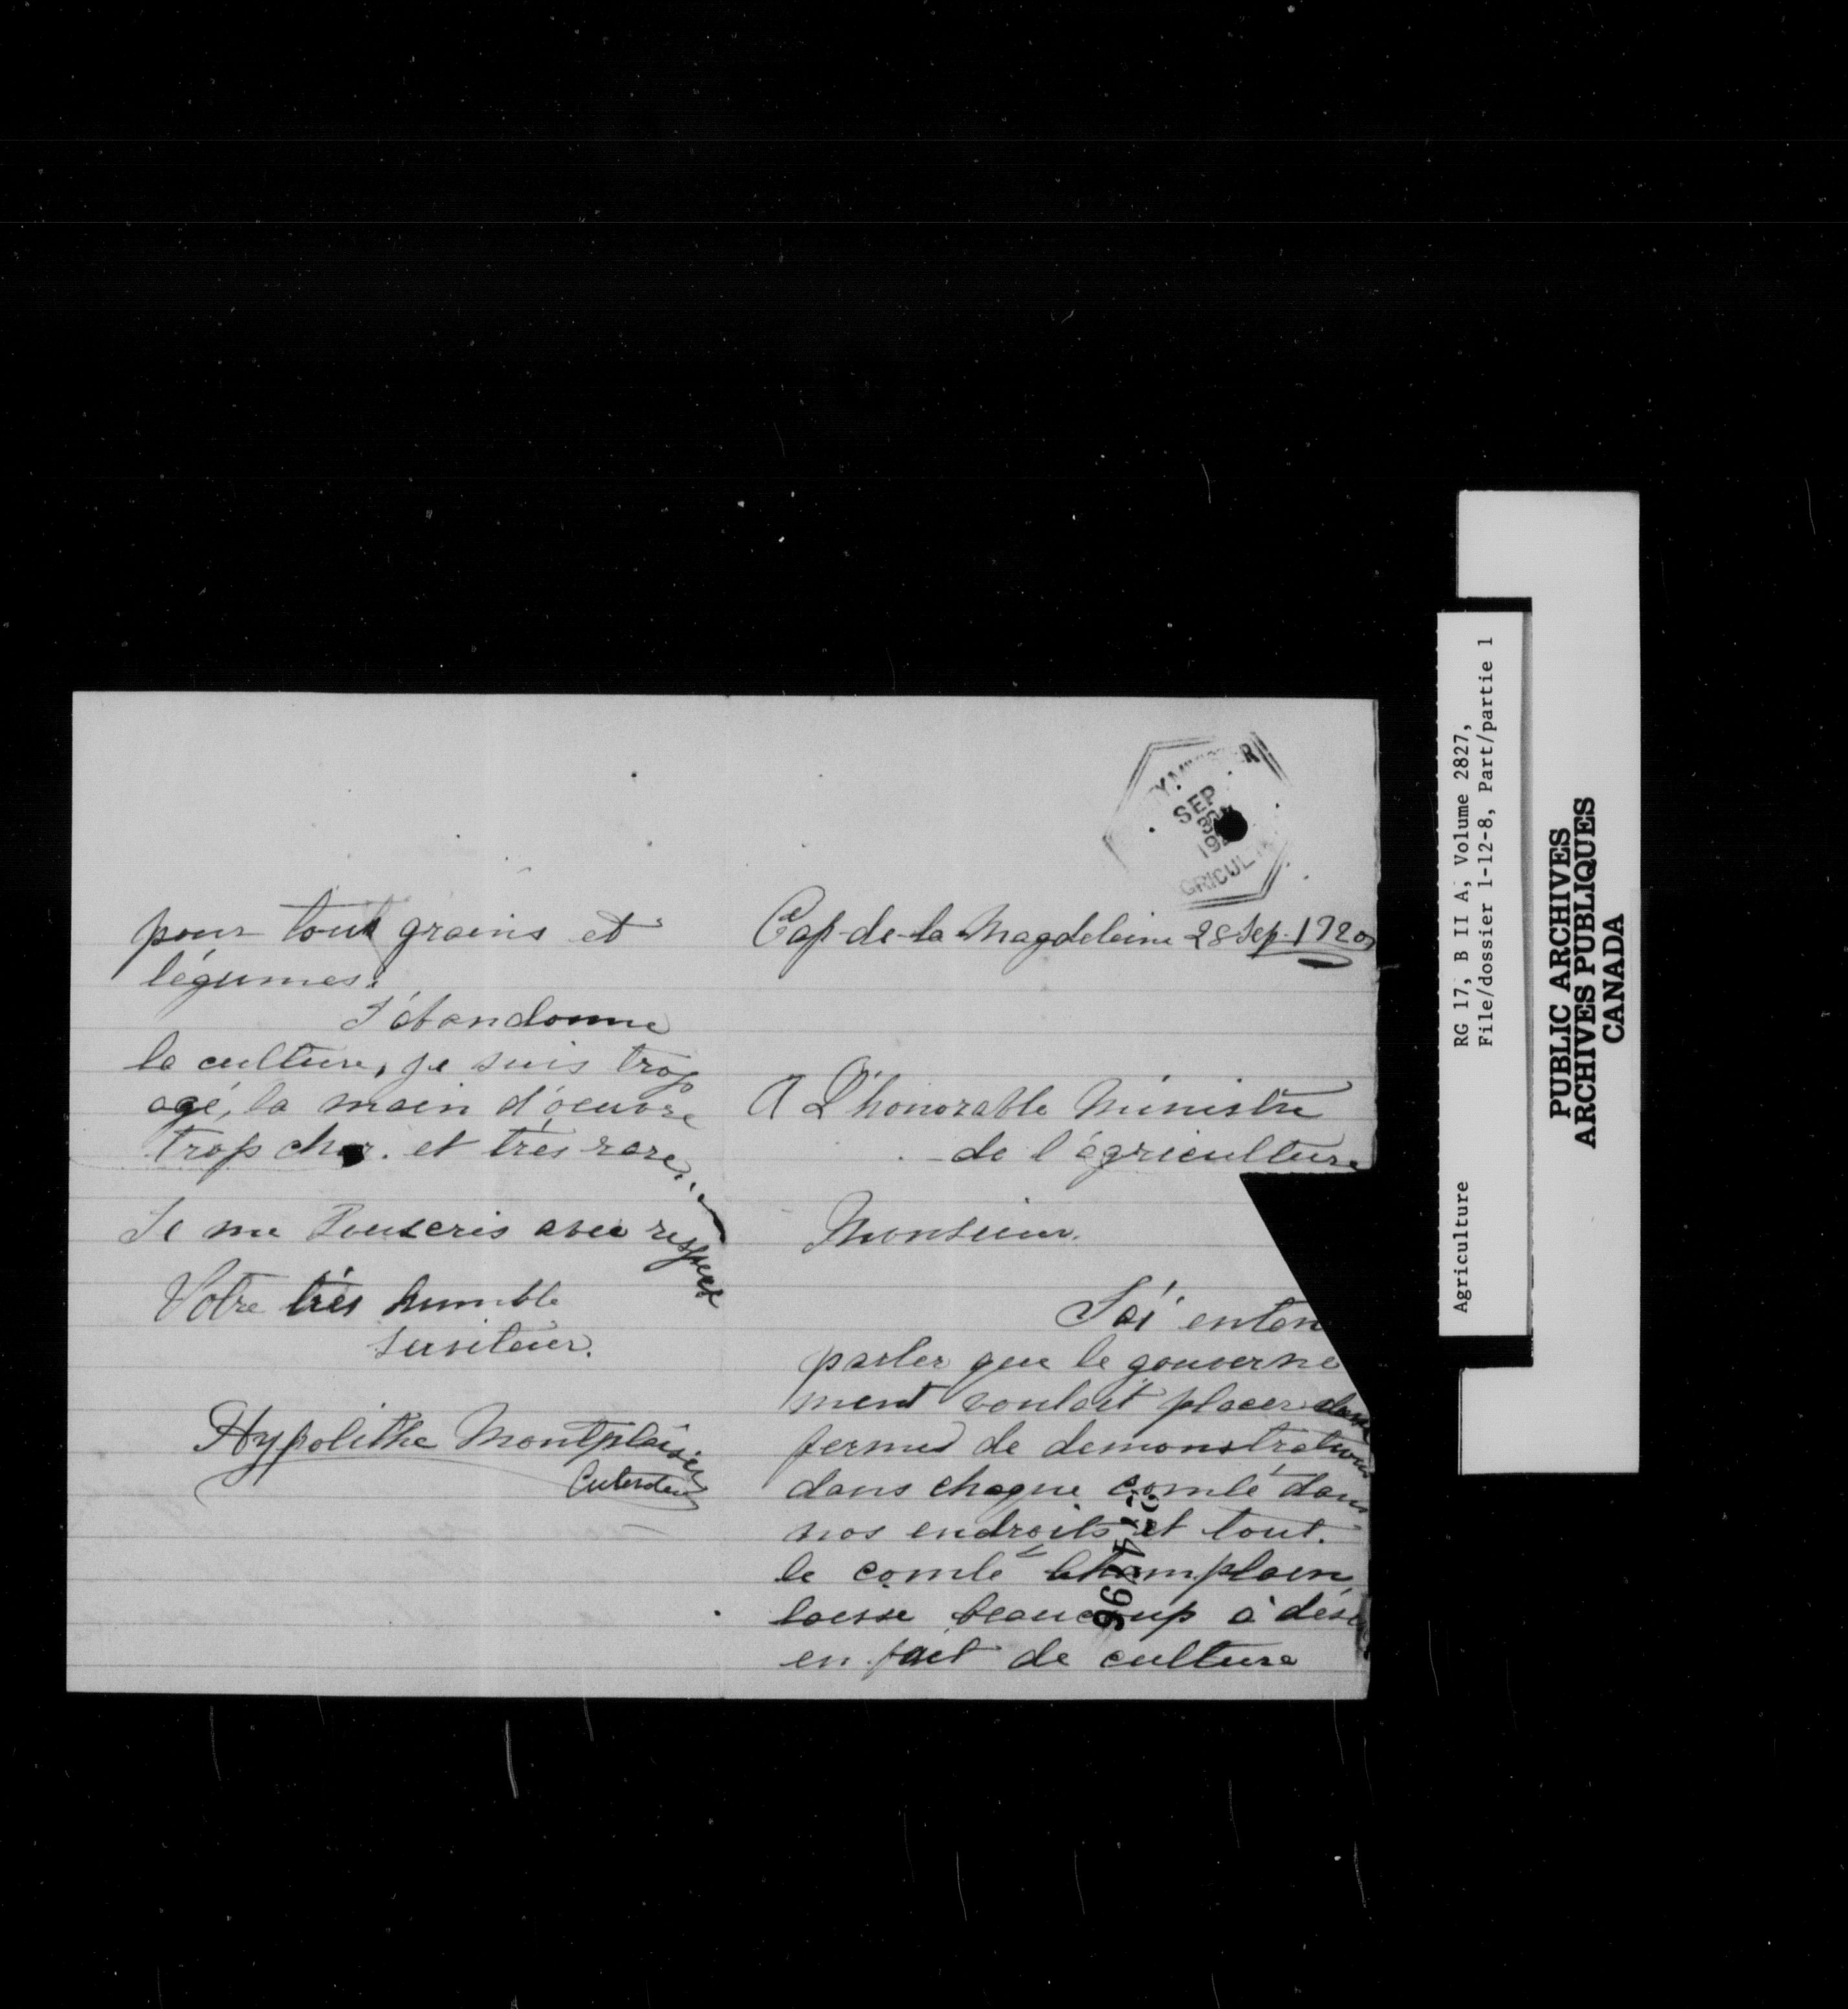 pour tout grains et
légumes.
J'abandonne
la culture, je suis trop
agé, la main d'oeuvre
trop cher. et très rare.
Je me Souscris avec respect
Votre très humble
serviteur.
Hypolithe Montplaisir
MINISTER
SEP
30
GRICUL
Cap-de-la Magdeleine 28 Sep. 1920
A L'honorable Ministre
de l'agriculture
Monsieur.
J'ai enten
parler que le gouverne
ment voulait placer
fermes de demonstrations
dans chaque comté dans
nos endroits et tout.
le comté Champlain
laisse beaucoup à dési
en fait de culture
Agriculture RG 17, B II A, Volume 2827,
File/dossier 1-12-8, Part/partie 1
PUBLIC ARCHIVES
ARCHIVES PUBLIQUES
CANADA